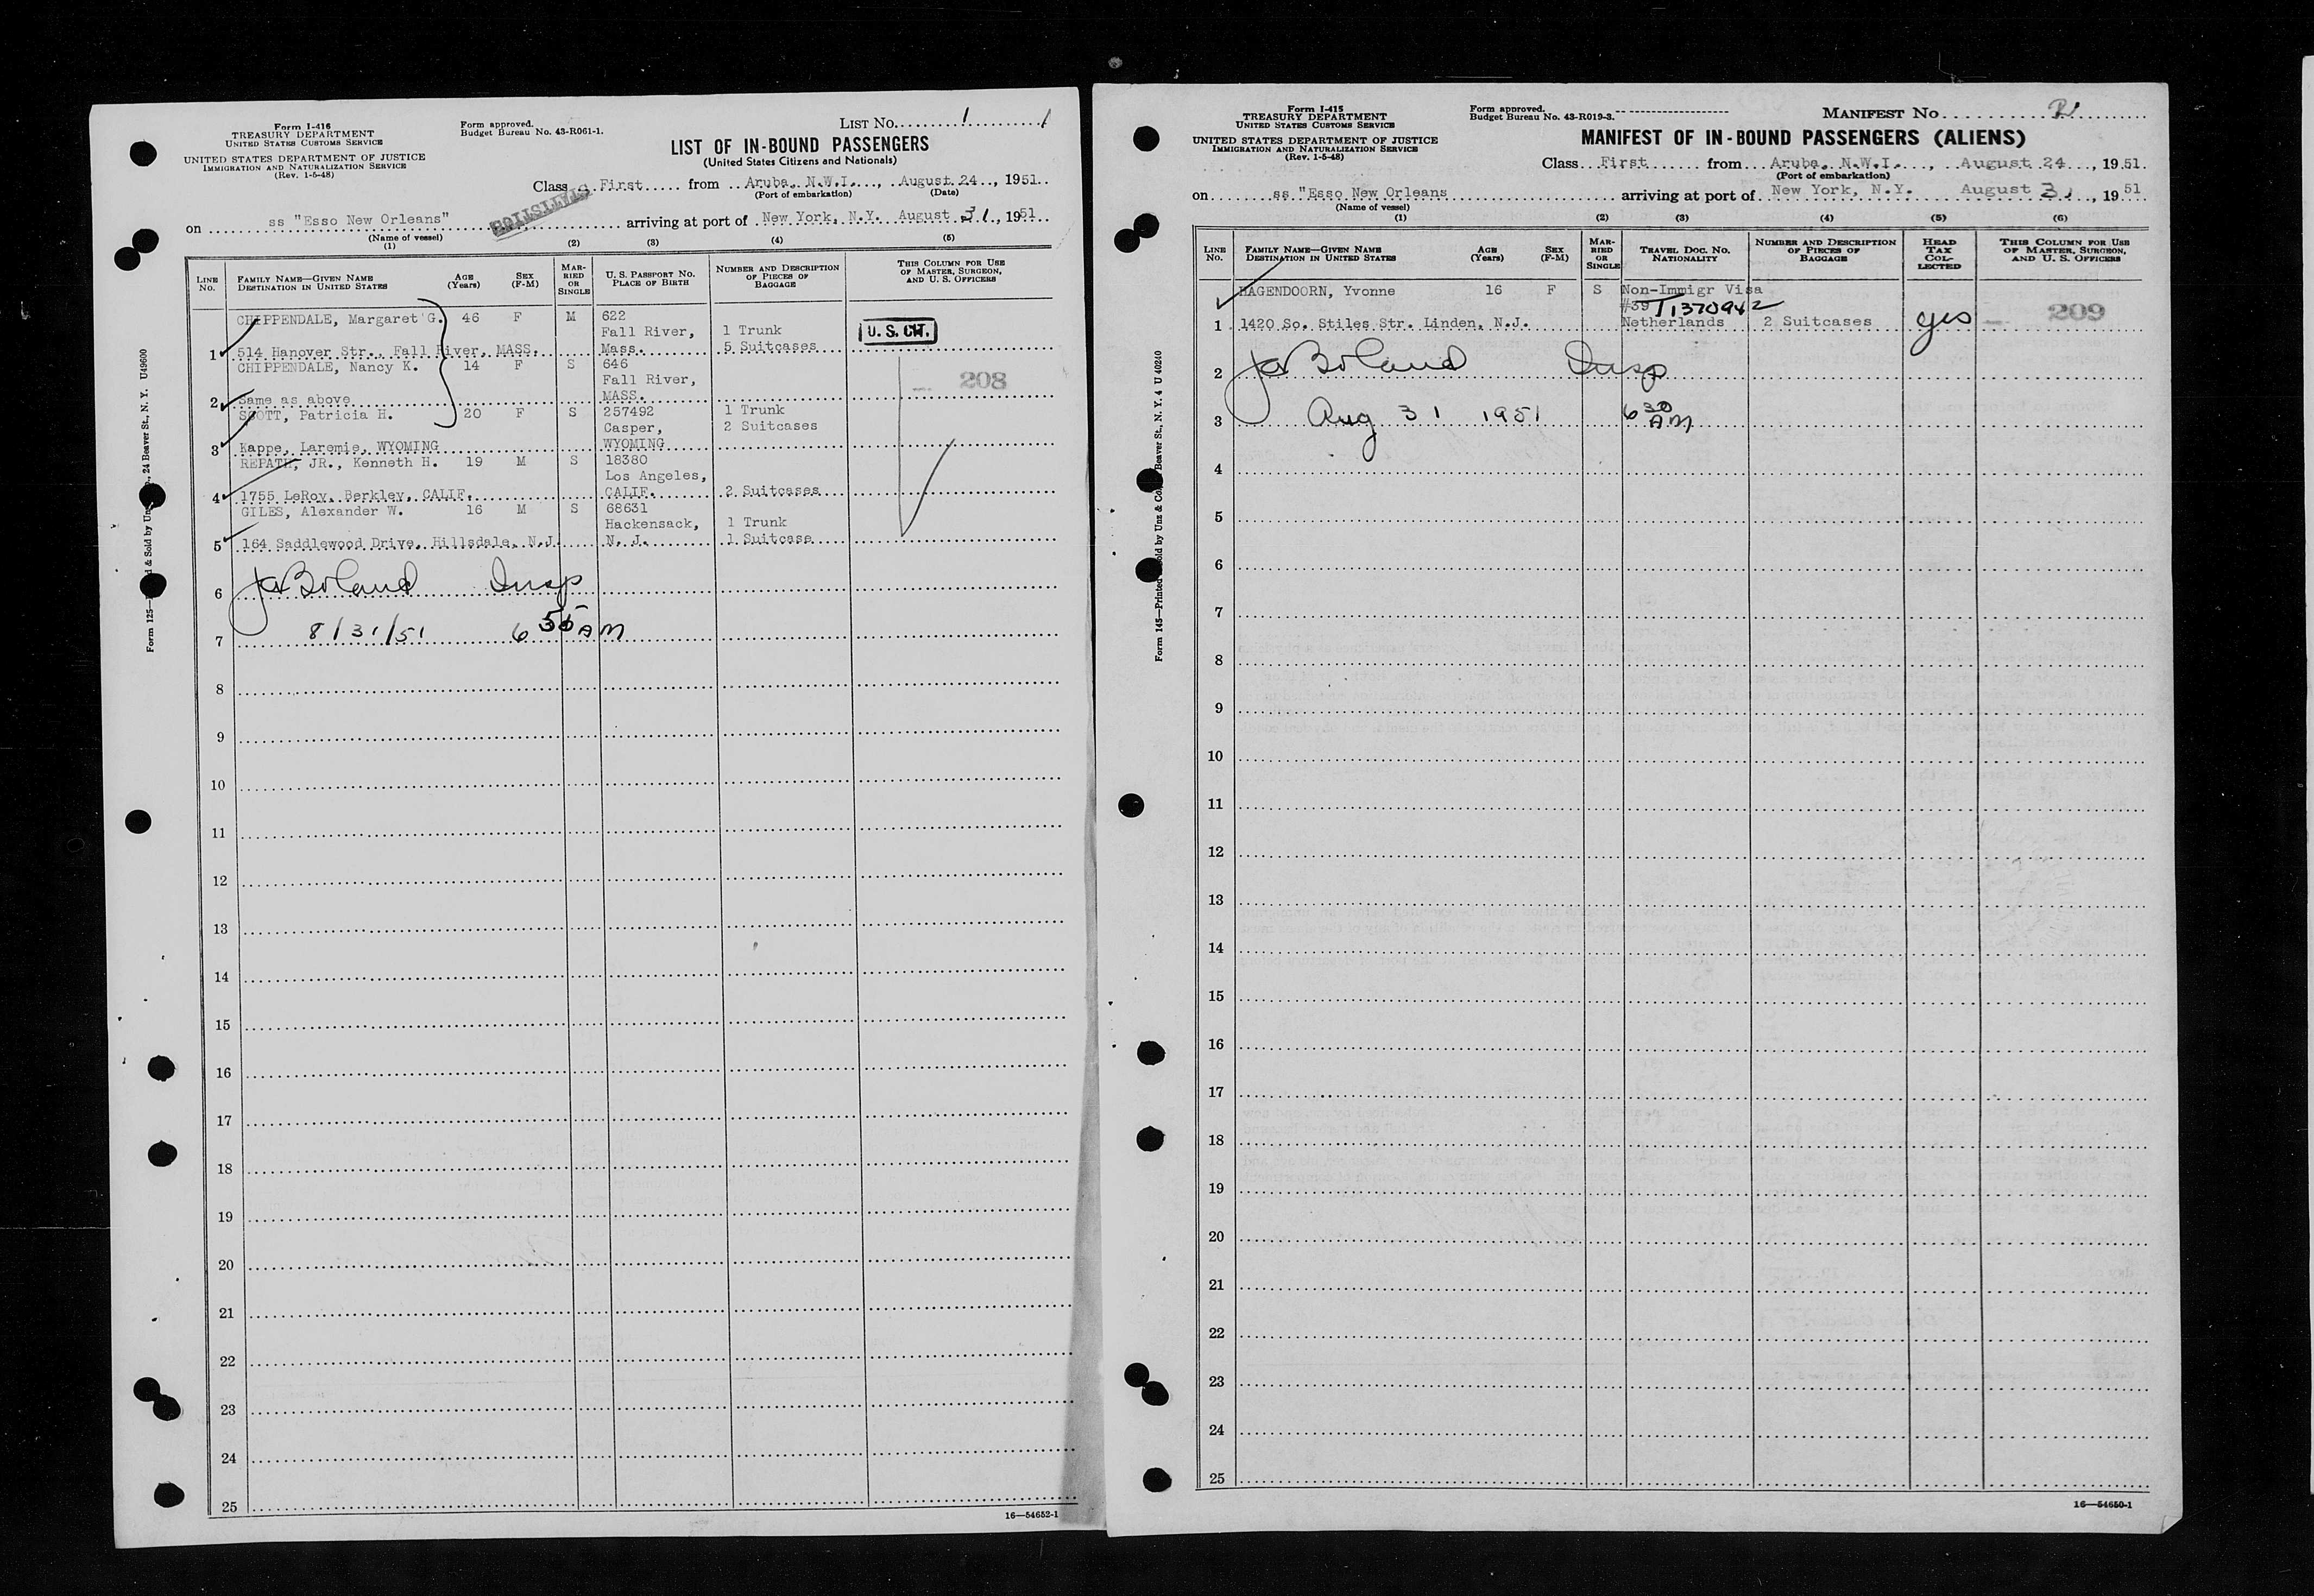 Form I-416
TREASURY DEPARTMENT
UNITED STATES CUSTOMS SERVICE
UNITED STATES DEPARTMENT OF JUSTICE
IMMIGRATION AND NATURALIZATION SERVICE
(Rev. 1-5-48)
Form approved.
Budget Bureau No. 43-R061-1.
LIST NO. 1 1
LIST OF IN-BOUND PASSENGERS
(United States Citizens and Nationals)
Class First from Aruba, N.W.I., August 24, 1951
(Port of embarkation) (Date)
STATISTICS
on ss "Esso New Orleans" arriving at port of New York, N.Y. August 31, 1951
(Name of vessel)
(1) (2) (3) (4) (5)
LINE No. FAMILY NAME—GIVEN NAME DESTINATION IN UNITED STATES AGE (Years) SEX (F-M) MARRIED OR SINGLE U. S. PASSPORT NO. PLACE OF BIRTH NUMBER AND DESCRIPTION OF PIECES OF BAGGAGE THIS COLUMN FOR USE OF MASTER, SURGEON, AND U. S. OFFICERS
CHIPPENDALE, Margaret G. 46 F M 622
Fall River, 1 Trunk U. S. CIT.
1 514 Hanover Str., Fall River, MASS. Mass. 5 Suitcases
CHIPPENDALE, Nancy K. 14 F S 646
Fall River, 208
2 Same as above MASS.
SCOTT, Patricia H. 20 F S 257492 1 Trunk
Casper, 2 Suitcases
3 Kappe, Laremie, WYOMING WYOMING
REPATH, JR., Kenneth H. 19 M S 18380
Los Angeles,
4 1755 LeRoy, Berkley, CALIF. CALIF. 2 Suitcases
GILES, Alexander W. 16 M S 68631
Hackensack, 1 Trunk
5 164 Saddlewood Drive, Hillsdale, N.J. N. J. 1 Suitcase
6 Boland Insp
7 8/31/51 6 55 AM
8
9
10
11
12
13
14
15
16
17
18
19
20
21
22
23
24
25
16—54652-1
Form 125— & Sold by 24 Beaver St., N. Y. U49600
Form I-415
TREASURY DEPARTMENT
UNITED STATES CUSTOMS SERVICE
UNITED STATES DEPARTMENT OF JUSTICE
IMMIGRATION AND NATURALIZATION SERVICE
(Rev. 1-5-48)
Form approved.
Budget Bureau No. 43-R019-3.
MANIFEST NO.
MANIFEST OF IN-BOUND PASSENGERS (ALIENS)
Class First from Aruba, N.W.I., August 24, 1951.
(Port of embarkation)
on ss "Esso New Orleans arriving at port of New York, N.Y. August 31, 1951
(Name of vessel)
(1) (2) (3) (4) (5) (6)
LINE No. FAMILY NAME—GIVEN NAME DESTINATION IN UNITED STATES AGE (Years) SEX (F-M) MARRIED OR SINGLE TRAVEL DOC. NO. NATIONALITY NUMBER AND DESCRIPTION OF PIECES OF BAGGAGE HEAD TAX COLLECTED THIS COLUMN FOR USE OF MASTER, SURGEON, AND U. S. OFFICERS
HAGENDOORN, Yvonne 16 F S Non-Immigr Visa
#39 T1370942
1 1420 So. Stiles Str. Linden, N.J. Netherlands 2 Suitcases yes 209
2 Boland Insp
3 Aug 31 1951 6 30 AM
4
5
6
7
8
9
10
11
12
13
14
15
16
17
18
19
20
21
22
23
24
25
16—54650-1
Form 145—Printed & Sold by Unz & Co., Beaver St., N. Y. 4 U 40240